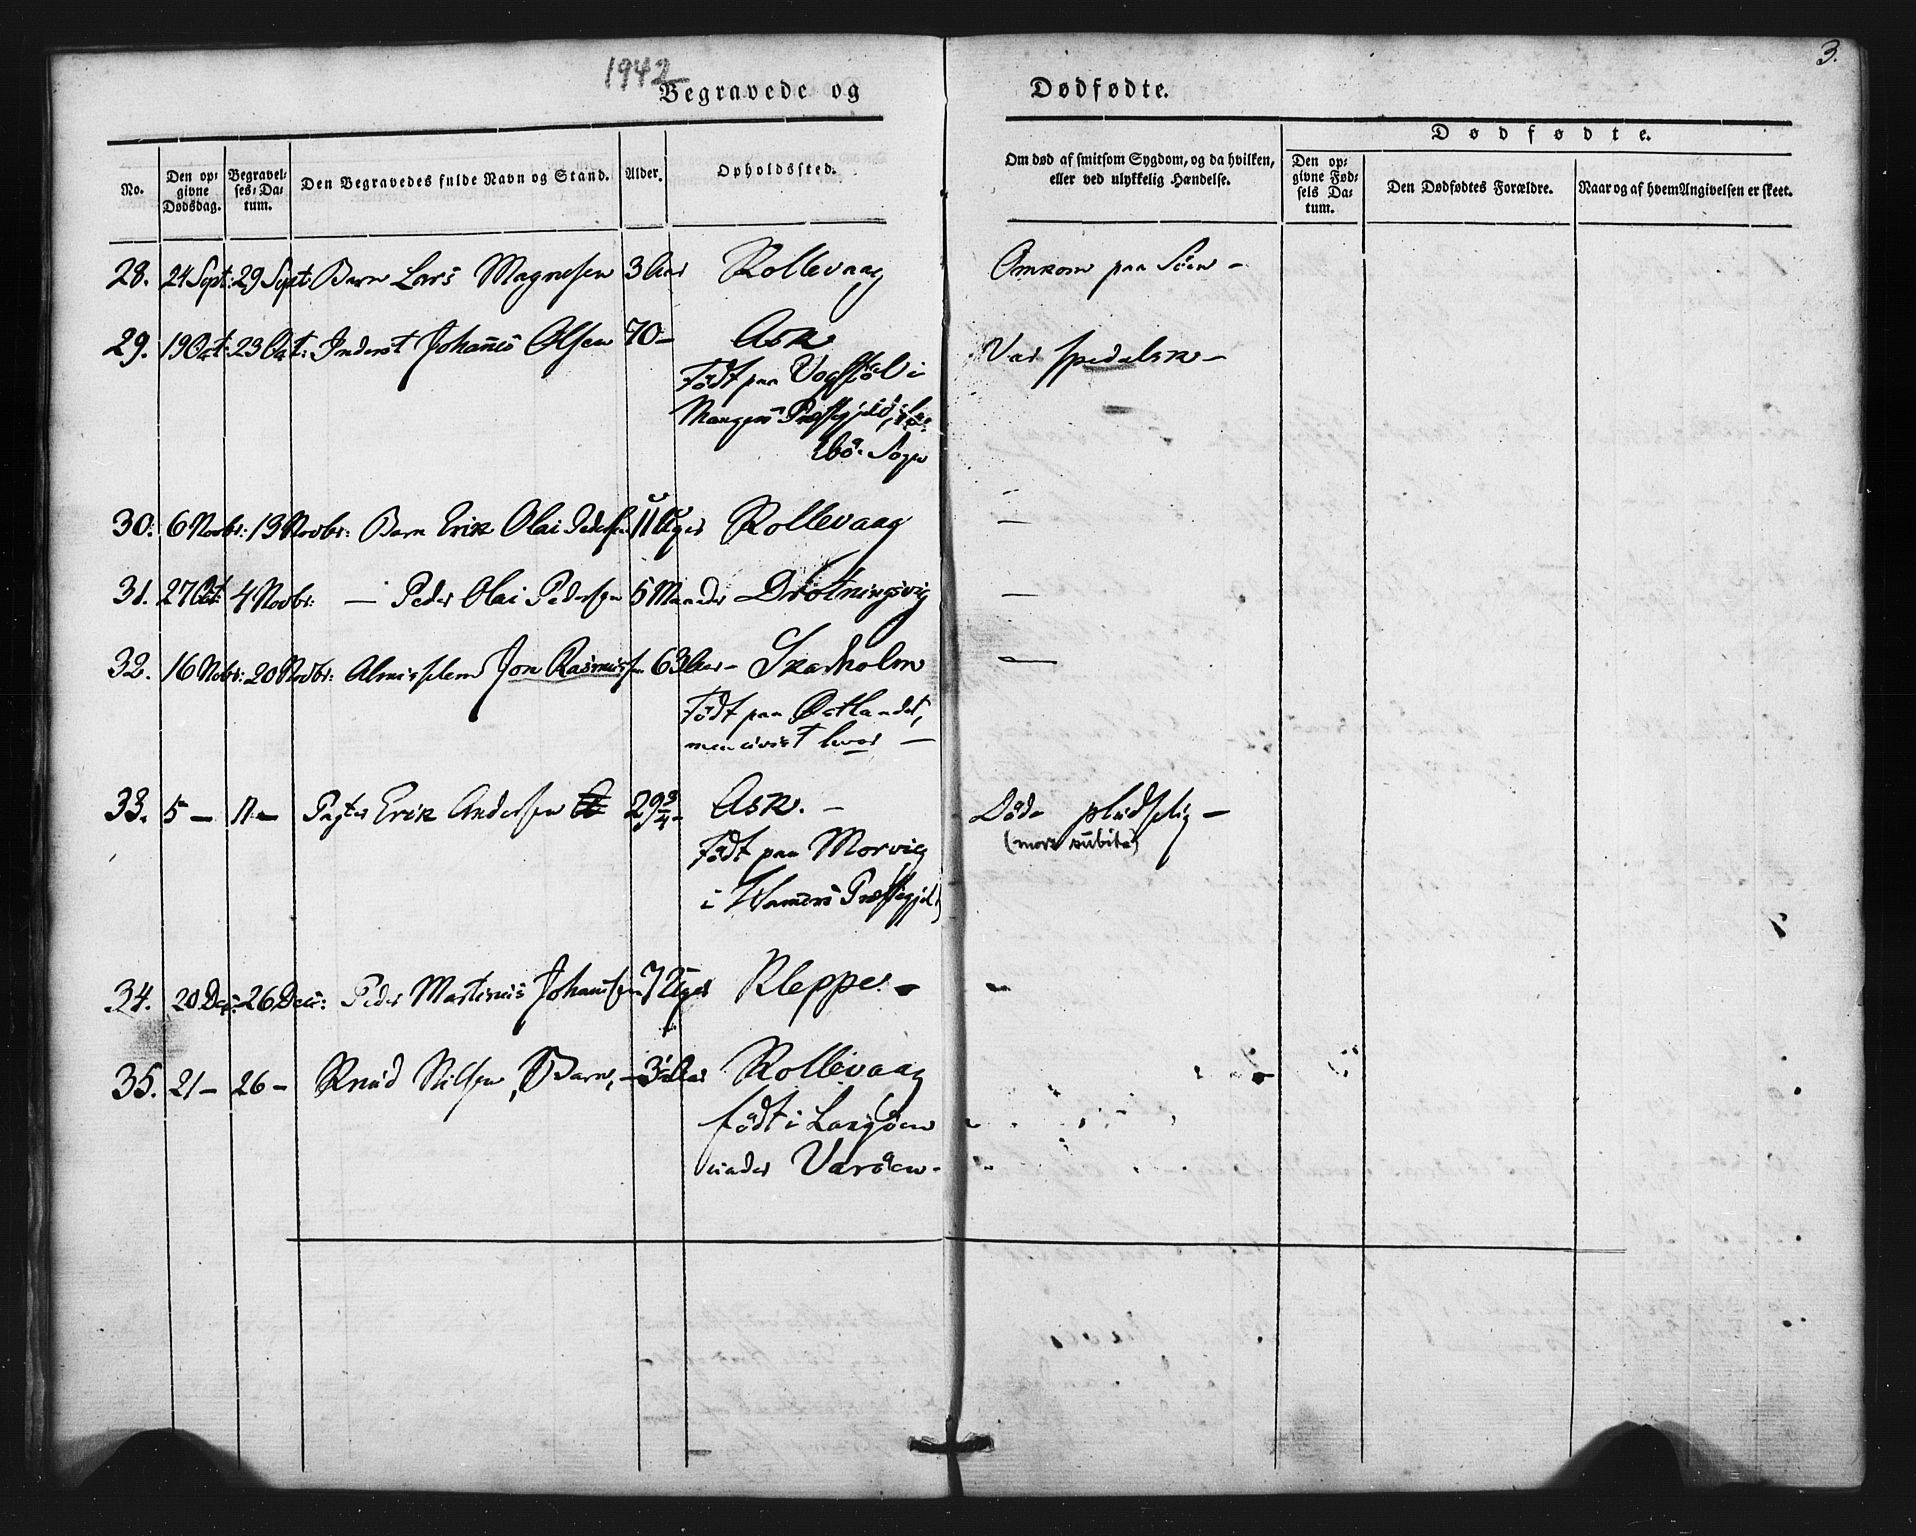 3.
1942
Begravede og Dødfødte.
Dødfødte.
No.
Den opgivne Dødsdag.
Begravelses-Datum.
Den Begravedes fulde Navn og Stand.
Alder.
Opholdssted.
Om død af smitsom Sygdom, og da hvilken, eller ved ulykkelig Hændelse.
Den opgivne Fødsels Datum.
Den Dødfødtes Forældre.
Naar og af hvem Angivelsen er skeet.
28. 24 Sept: 29 Sept: Barn Lars Magnesen 3 Aar Rollevaag Omkom paa Söen -
29. 19 Oct: 23 Oct: Inderst Johannes Olsen 70 - Ask Var spedalsk -
Födt paa
Mangers Præstegjeld,
Sogn
30. 6 Novbr: 13 Novbr: Barn Erik Olai Pedersen 11 Uger Rollevaag -
31. 27 Oct: 4 Novbr: - Peder Olai Pedersen 5 Maaneder Drotningsvig -
32. 16 Novbr: 20 Novbr: Almisselem Jon Rasmussen 63 Aar - Skarholm -
Födt paa Östlandet,
men uvist hvor -
33. 5 - 11 - Pagter Erik Andersen 29 3/4 - Ask. - Döde pludselig -
(mors subita)
Födt paa Morvig
i Hamers Præstegjeld
34. 20 Dec: 26 Dec: Peder Martinus Johannesen 7 Uger Kleppe. - -
35. 21 - 26 - Knud Nilsen, Barn, - 3 Aar Rollevaag
födt i Langöen
under Varöen -